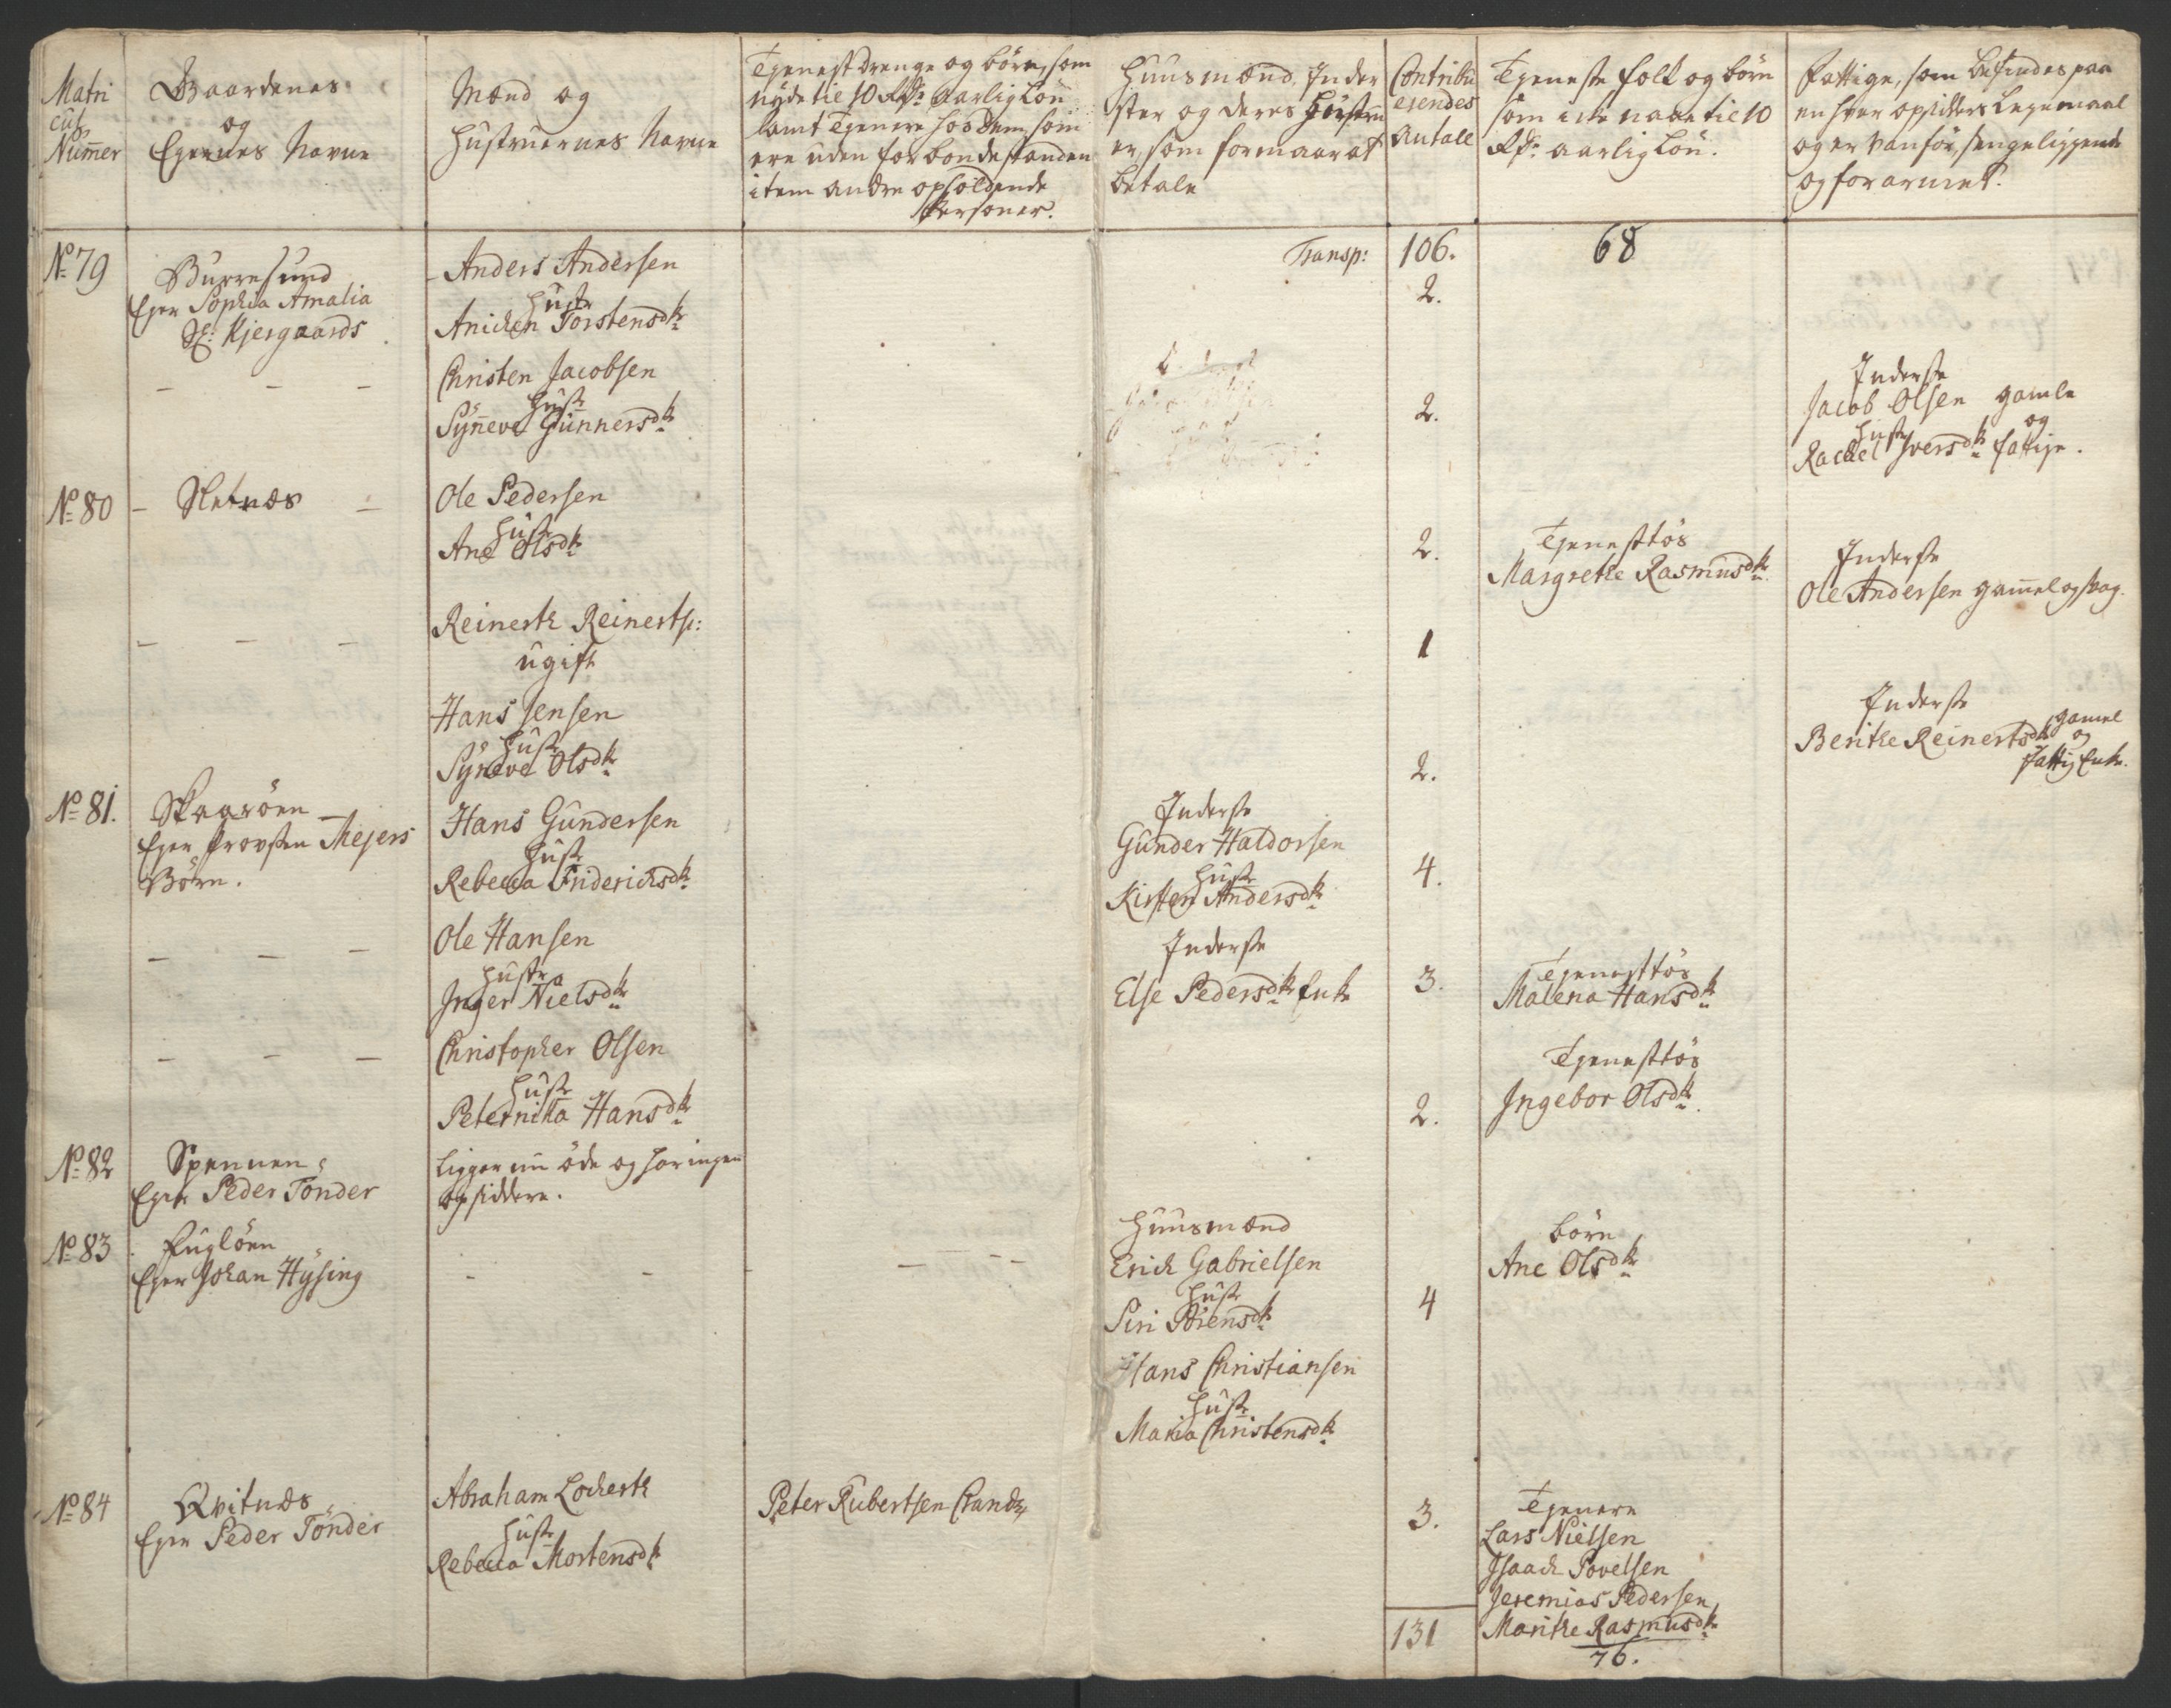 Matri
cul
Numer
Gaardenes
og
Ejernes Navne
Mænd og
Hustruernes Navne
Tjenestdrenge og börn, som
nyde til 10 Rdr aarlig Lön
samt Tjenere hos dem, som
ere uden for bondestanden
item andre opholdende
Personer.
Huusmænd, Inder
ster og deres Hustru
er, som formaar at
betale
Contribu
erendes
Antall
Tjeneste folk og börn
som icke naae til 10
Rdr aarlig Lön.
Fattige, som befindes paa
en hver opsidders Leyemaal
og er vanför, sengeliggende
og forarmet.
Transp: 106. 68
No 79
Burresund
Ejer Sophia Amalia
Sl: Kjergaards
Anders Andersen
Hustr
Anichen Torstensdtr
2.
Christen Jacobsen
Hustr
Syneve Gunnersdtr
2.
Inderste
Jacob Olsen gamle
Hustr og
Rachel Iversdtr fattige.
No 80 - Sletnæs -
Ole Pedersen
Hustr
Ane Olsdtr
2.
Tjenesttös
Margrethe Rasmusdtr
Inderste
Ole Andersen gamel og svag.
Reinerth Reinerts:
ugift
1
Hans Jensen
Hustr
Syneve Olsdtr
2.
Inderste
Berithe Reinertsdtr gamel
og
fattig Enke.
No 81.
Skaaröen
Ejer Provsten Mejers
Börn.
Hans Gundersen
Hustr
Rebecca Friderichsdtr
Inderste
Gunder Haldorsen
Hustr
Kirsten Andersdtr
4.
Ole Hansen
Hustr
Inger Nielsdtr
Inderste
Else Pedersdtr Enke
3.
Tjenesttös
Malena Hansdtr
Christopher Olsen
Hustr
Peternilla Hansdtr
2.
Tjenesttös
Ingebor Olsdtr
No 82
Spennen
Ejer Peder Tönder
ligger nu öde og har ingen
opsiddere.
No 83
Fuglöen
Ejer Johan Hysing
Huusmænd
Erich Gabrielsen
Hustr
Siri Sörensdtr
4
börn
Ane Olsdtr
Hans Christiansen
Hustr
Maria Christensdtr
No 84
Qvitnæs
Ejer Peder Tönder
Abraham Lockerth
Hustr
Rebecca Mortensdtr
Peter Rubertsen
3.
Tjenere
Lars Nielsen
Isaach Povelsen
Jeremias Pedersen
Marithe Rasmusdtr
131
76.